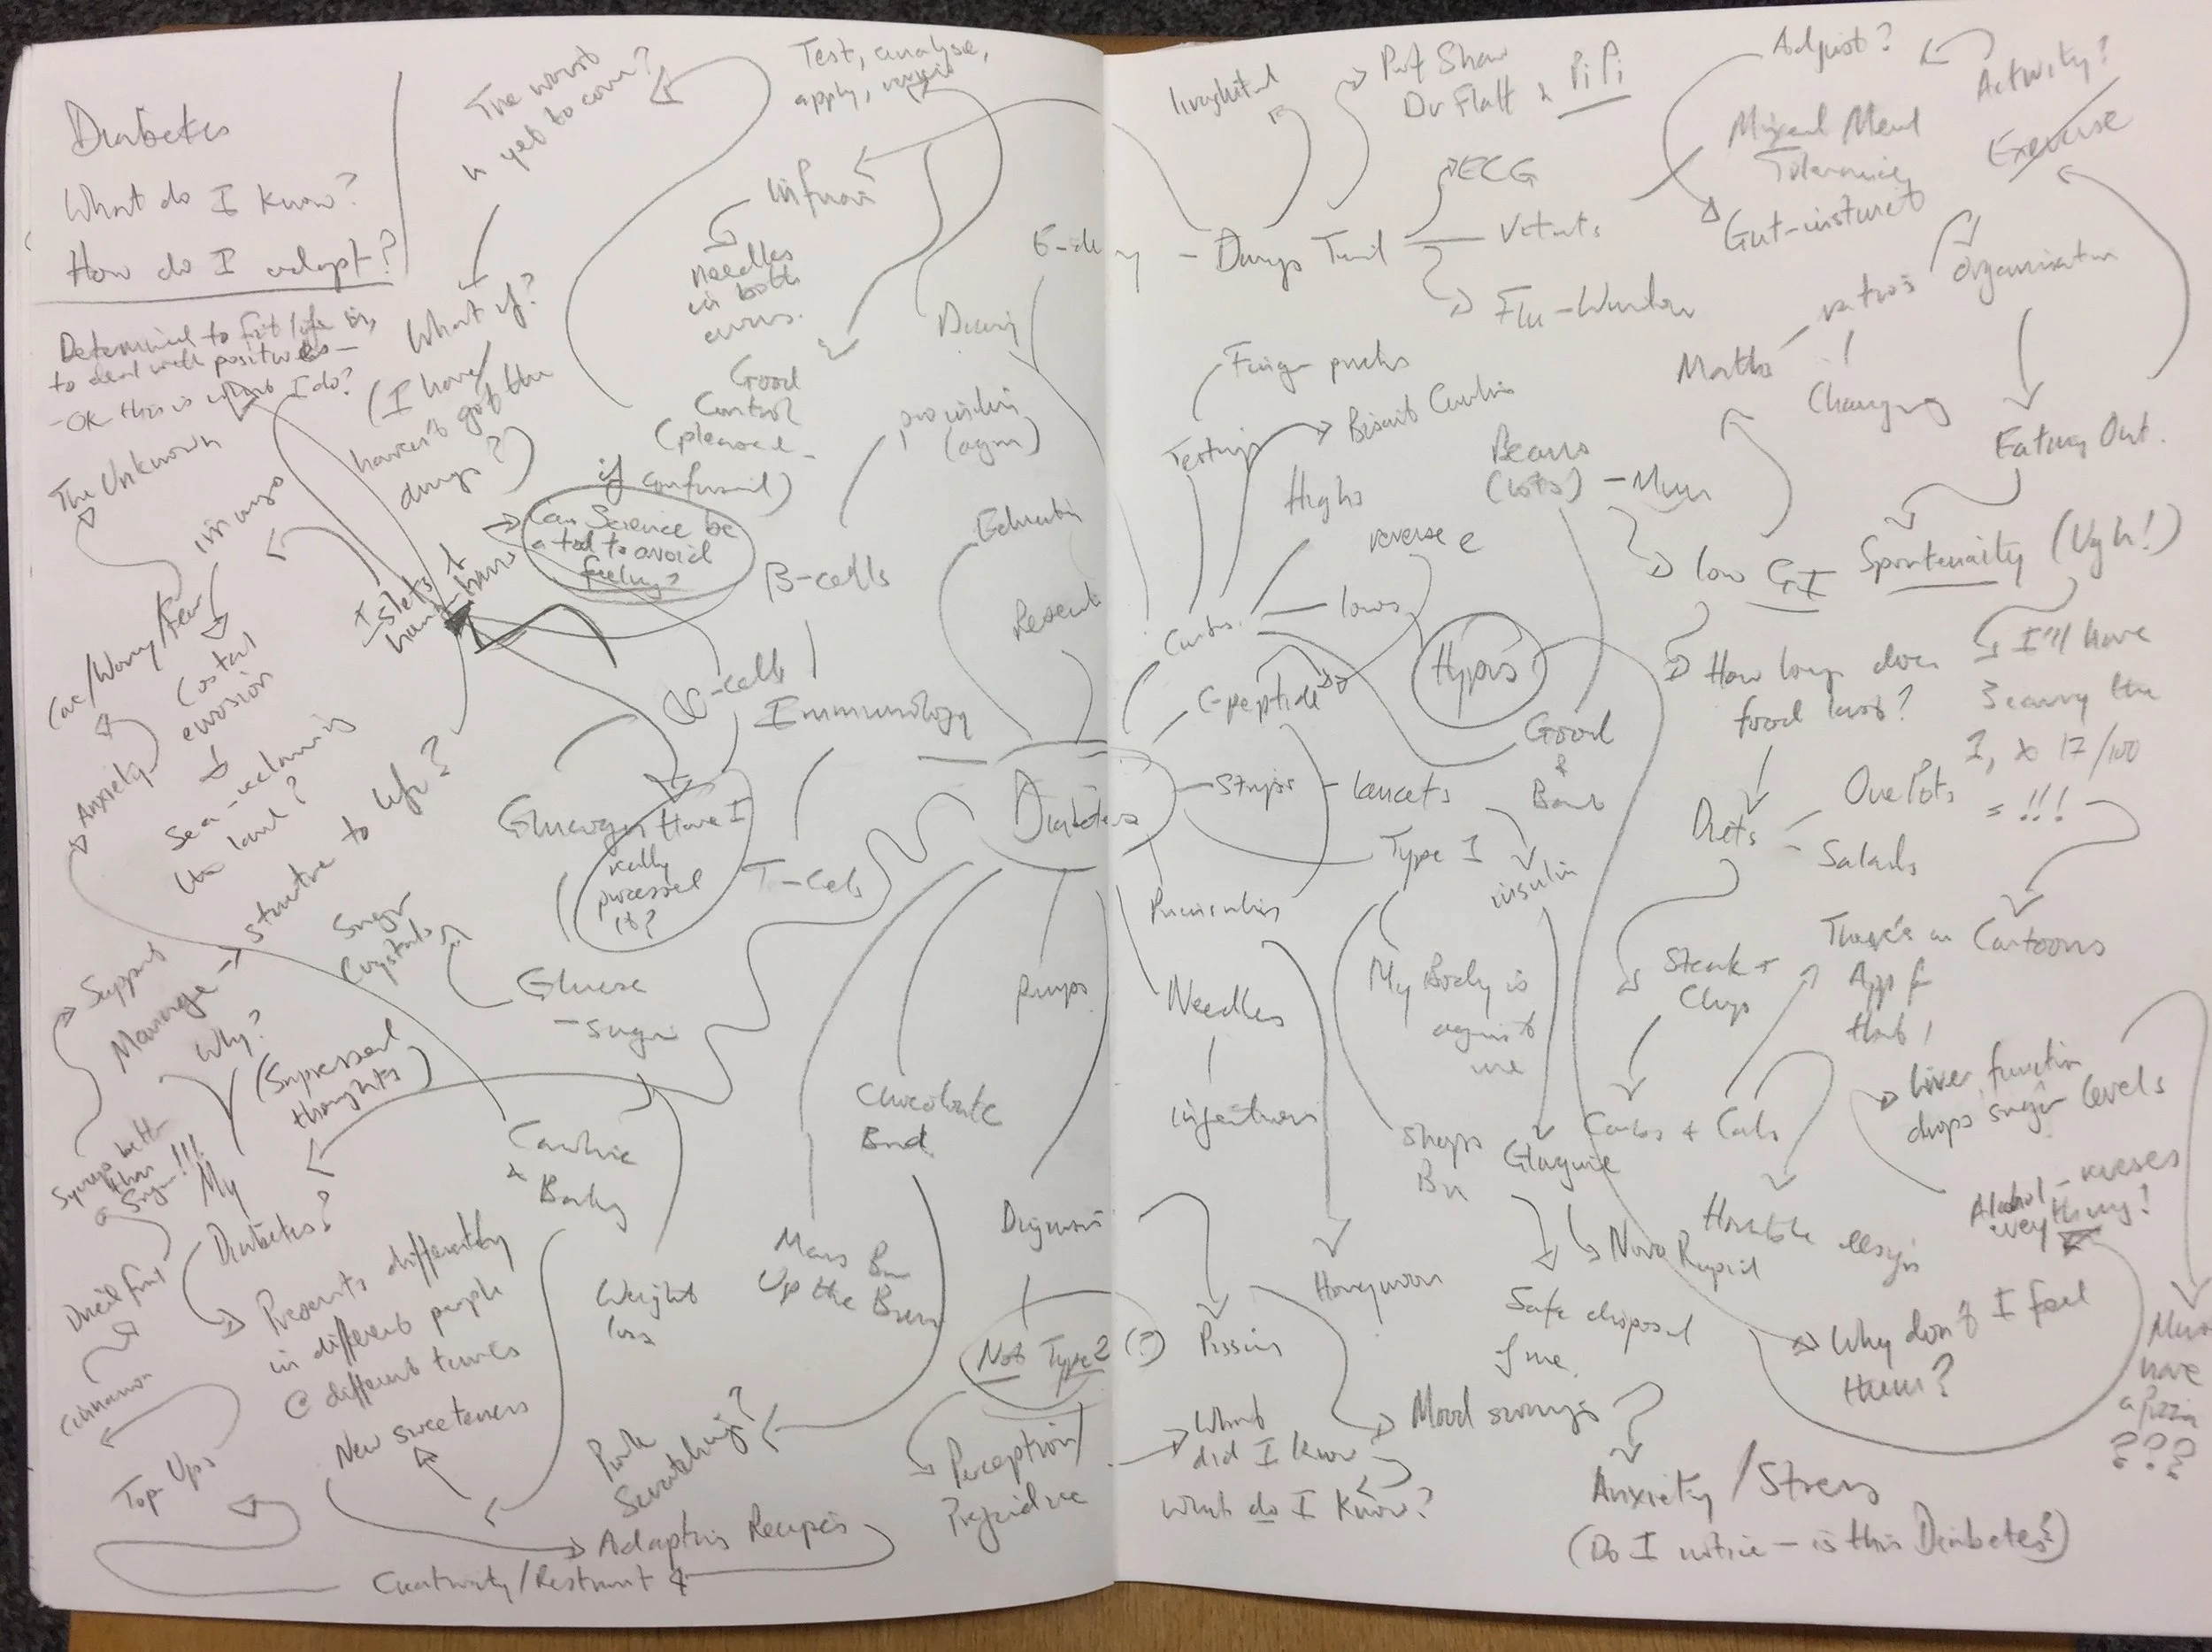 Diabetes
What do I know?
How do I adapt?
Determined to fit life in,
to deal with positives –
– OK this is what I do?
The Unknown
The worst
is yet to come?
What if?
(I have/
haven't got the
drugs?)
Test, analyse,
apply,
needles
in both
arms.
Good
Control
(pleased –
if confusing)
Can Science be
a tool to avoid
feeling?
Islets +
Care/Worry/Fear
Coastal
erosion
Sea-reclaiming
the land?
Anxiety
structure to life?
Manage
Support
Why?
(Supressed
thoughts)
My
Diabetes?
Presents differently
in different people
@ different times
New sweeteners
Cinnamon
Top Ups
Creativity/Restraint
Adapting Recipes
Sugar
Crystals
Glucose
– sugar
Have I
really
processed
it?
β-cells
α-cells
Immunology
T-cells
Education
Diabetes
Pumps
Chocolate
Bread
Cooking
+
Baking
Weight
loss
Mars Bar
Up the Bum
Pork
Scratchings?
Diagnosis
Not Type 2 (?)
Perception/
Prejudice
6-day – Drugs Trial
Prof Shaw
Dr Flatt & PiPi
ECG
Vitals
Flu-Window
Adjust?
Activity?
Exercise
Mixed Meal
Tolerance
Gut-instinct
ratios
organisation
Maths
Changing
Eating Out.
Spontenaity (Ugh!)
Finger pricks
Testing
Highs
lows
reverse e
Beans
(lots) – Mum
low GI
Carbs.
C-peptide
Hypos
Good
&
Bad
How long does
food last?
I'll have
3 curry the
I, x 17/100
= !!!
Diets
One Pots
Salads
Strips – lancets
Type 1
insulin
Needles
injections
My Body is
against
me
Steak +
Chips
There's an
App for
that!
Cartoons
Carbs + Cals
Liver function
drops sugar levels
Alcohol – messes
everything!
Sharps
Bin
Glargine
Novo Rapid
Horrible design
Honeymoon
Safe disposal
of me
Pissing
Why don't I feel
them?
Must
have
a pizza
???
What
did I know
What do I know?
Mood swings
Anxiety/Stress
(Do I notice – is this Diabetes?)